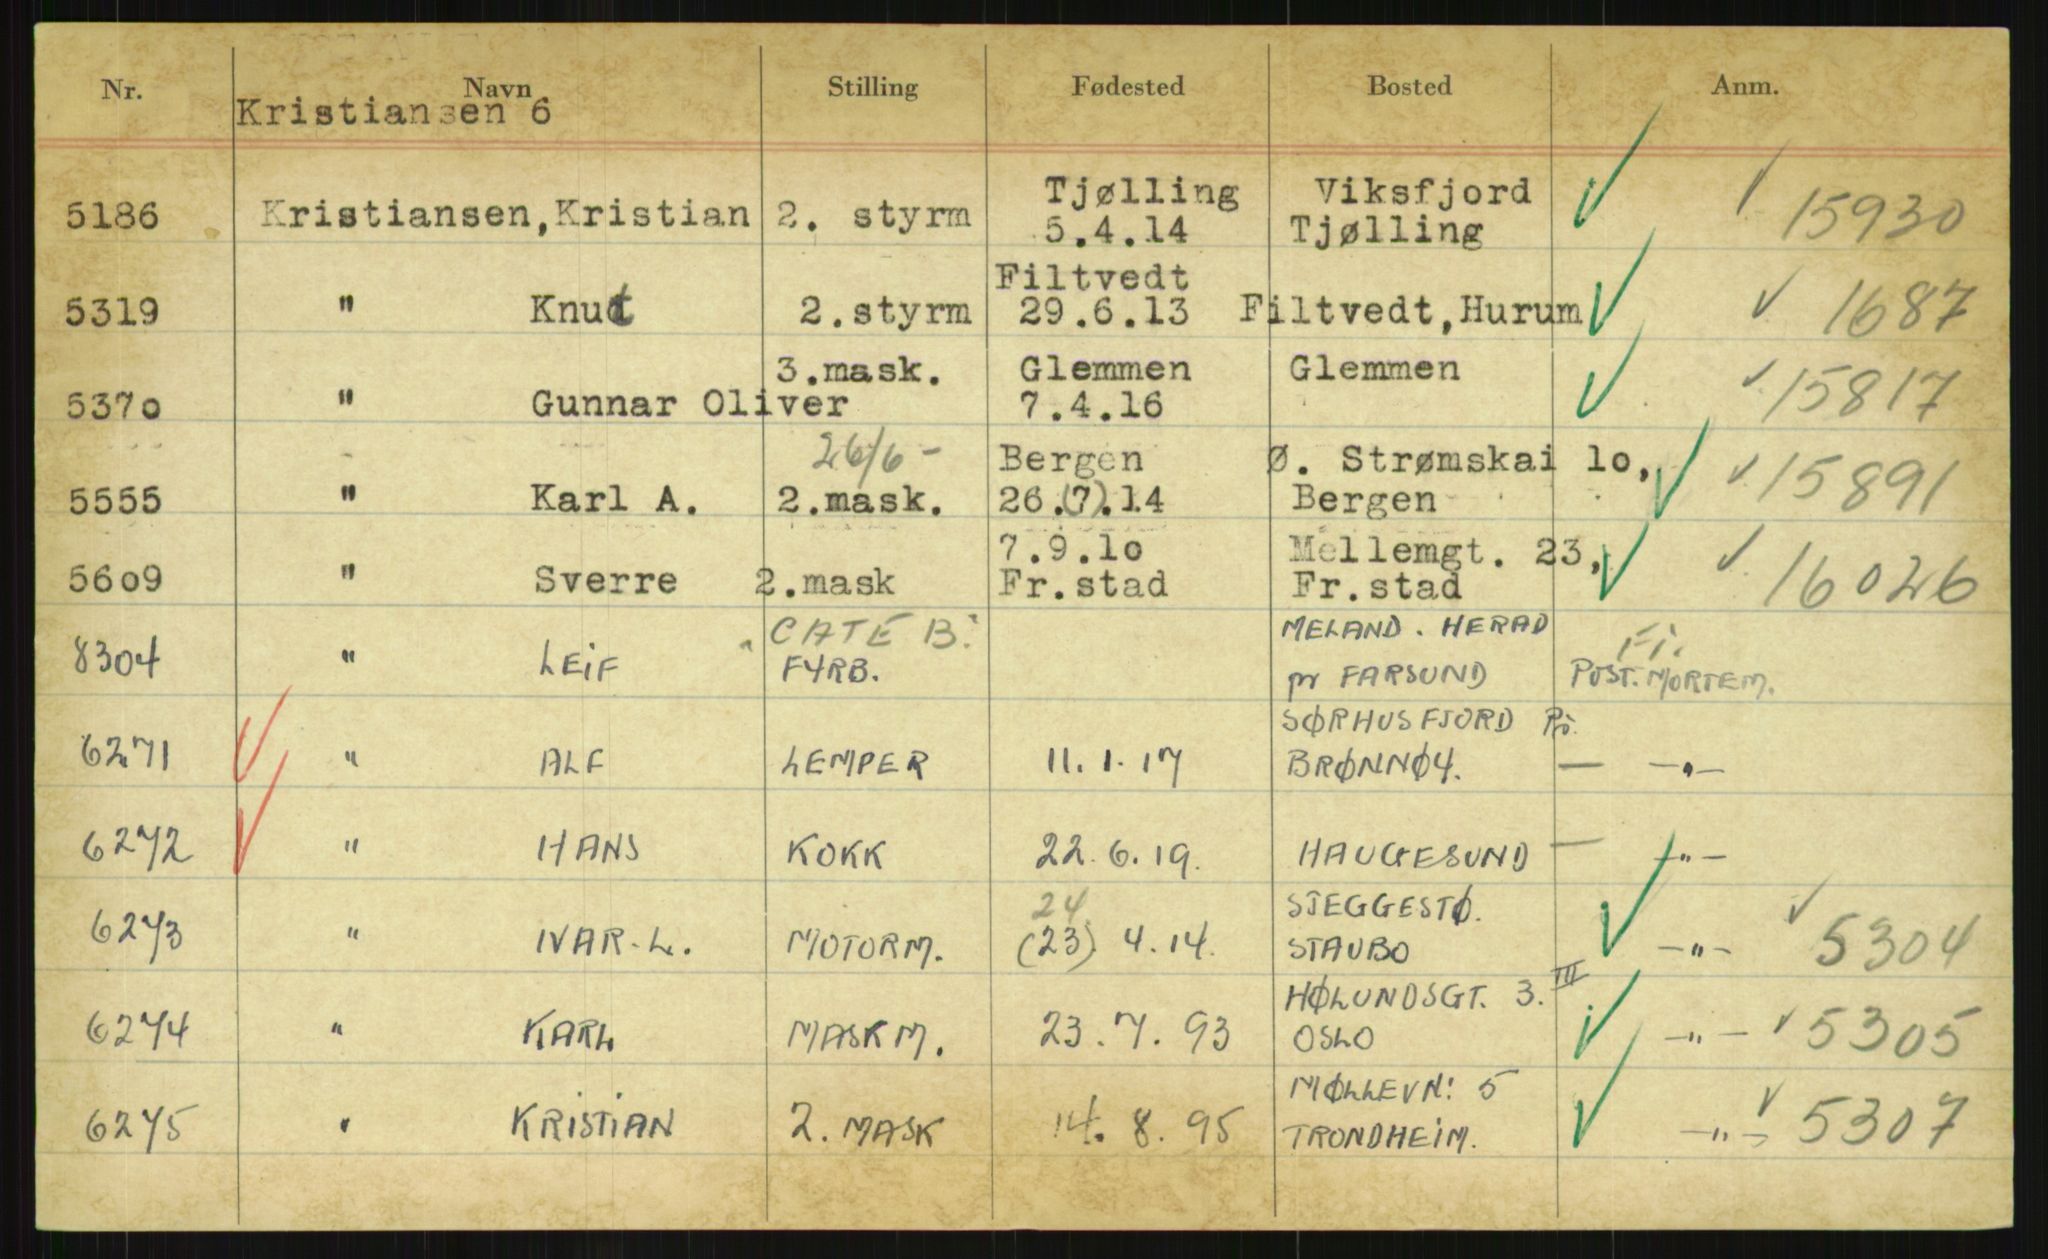 Nr. Navn Stilling Fødested Bosted Anm.
Kristiansen 6
Tjølling Viksfjord
5186 Kristiansen, Kristian 2. styrm 5.4.14 Tjølling 15930
Filtvedt
5319 " Knut 2.styrm 29.6.13 Filtvedt, Hurum 1687
3.mask. Glemmen Glemmen
5370 " Gunnar Oliver 7.4.16 15817
26/6- Bergen Ø. Strømskai 10,
5555 " Karl A. 2.mask. 26.(7).14 Bergen 15891
7.9.10 Mellemgt. 23,
5609 " Sverre 2.mask Fr.stad Fr.stad 16026
CATE B. MELAND. HERAD Fi.
8304 " LEIF FYRB. pr FARSUND POST. MORTEM.
SØRHUSFJORD
6271 " ALF LEMPER 11.1.17 BRØNNØY. — —"—
6272 " HANS KOKK 22.6.19. HAUGESUND — —"—
24 STEGGESTØ.
6273 " IVAR-L. MOTORM. (23) 4.14. STAUBO —"— 5304
HØLUNDSGT. 3. III
6274 " KARL MASKM. 23.7.93 OSLO —"— 5305
MØLLEVN: 5
6275 " KRISTIAN 2. MASK 14.8.95 TRONDHEIM. —"— 5307